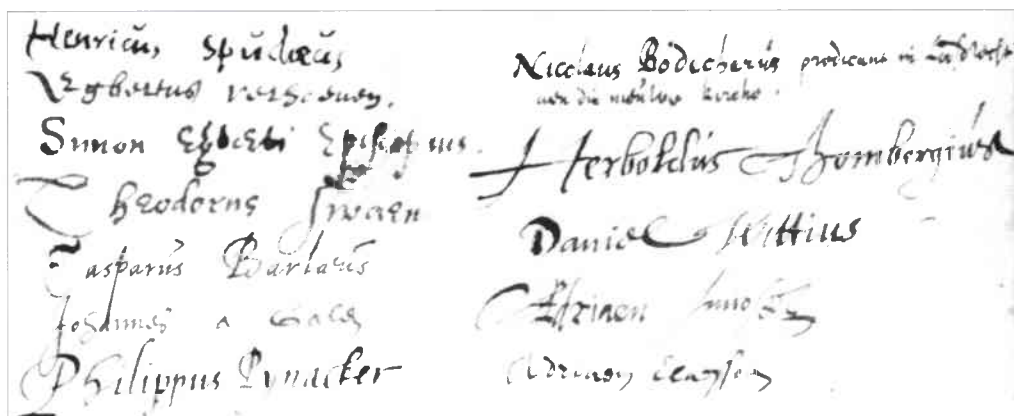 Henricus Spudæus
Egbertus verhoeven.
Simon Egberti Episcopius.
Theodorus Swaen
Casparus Barlæus
Johannes a
Philippus Pynacker
Nicolaus Bodecherus predicant in
van die kercke.
Herboldus Thombergius
Daniel Wittius
Adriaen
Adriaen